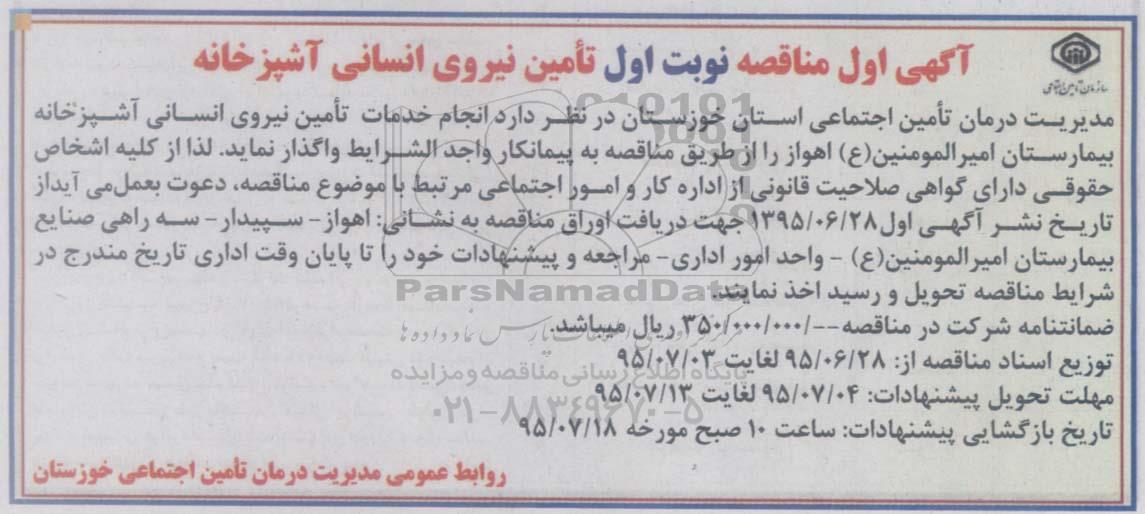 آگهی اول مناقصه نوبت اول تأمین نیروی انسانی آشپزخانه
سازمان تأمین اجتماعی
مدیریت درمان تأمین اجتماعی استان خوزستان در نظر دارد انجام خدمات تأمین نیروی انسانی آشپزخانه
بیمارستان امیرالمومنین(ع) اهواز را از طریق مناقصه به پیمانکار واجد الشرایط واگذار نماید. لذا از کلیه اشخاص
حقوقی دارای گواهی صلاحیت قانونی از اداره کار و امور اجتماعی مرتبط با موضوع مناقصه، دعوت بعمل می آیداز
تاریخ نشر آگهی اول ۱۳۹۵/۰۶/۲۸ جهت دریافت اوراق مناقصه به نشانی: اهواز- سپیدار- سه راهی صنایع
بیمارستان امیرالمومنین(ع) - واحد امور اداری- مراجعه و پیشنهادات خود را تا پایان وقت اداری تاریخ مندرج در
شرایط مناقصه تحویل و رسید اخذ نمایند.
ParsNamadData
ضمانتنامه شرکت در مناقصه --/۳۵۰/۰۰۰/۰۰۰ ریال میباشد.
مرکز فرآوری اطلاعات پارس نماد داده ها
توزیع اسناد مناقصه از: ۹۵/۰۶/۲۸ لغایت ۹۵/۰۷/۰۳
پایگاه اطلاع رسانی مناقصه و مزایده
مهلت تحویل پیشنهادات: ۹۵/۰۷/۰۴ لغایت ۹۵/۰۷/۱۳
۰۲۱-۸۸۳۴۹۶۷۰-۵
تاریخ بازگشایی پیشنهادات: ساعت ۱۰ صبح مورخه ۹۵/۰۷/۱۸
روابط عمومی مدیریت درمان تأمین اجتماعی خوزستان